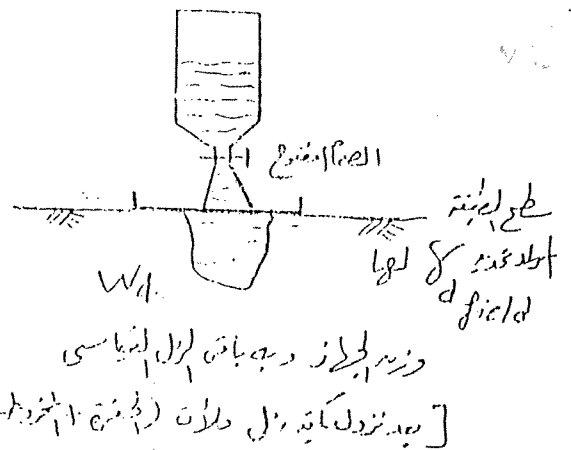 الصمام مفتوح
سطح الطبقة
المراد تحديد γ لها
d field
W4.
وزن الجهاز وبه باقى الرمل القياسى
[ بعد نزول كمية رمل ملأت الحفرة + المخروط